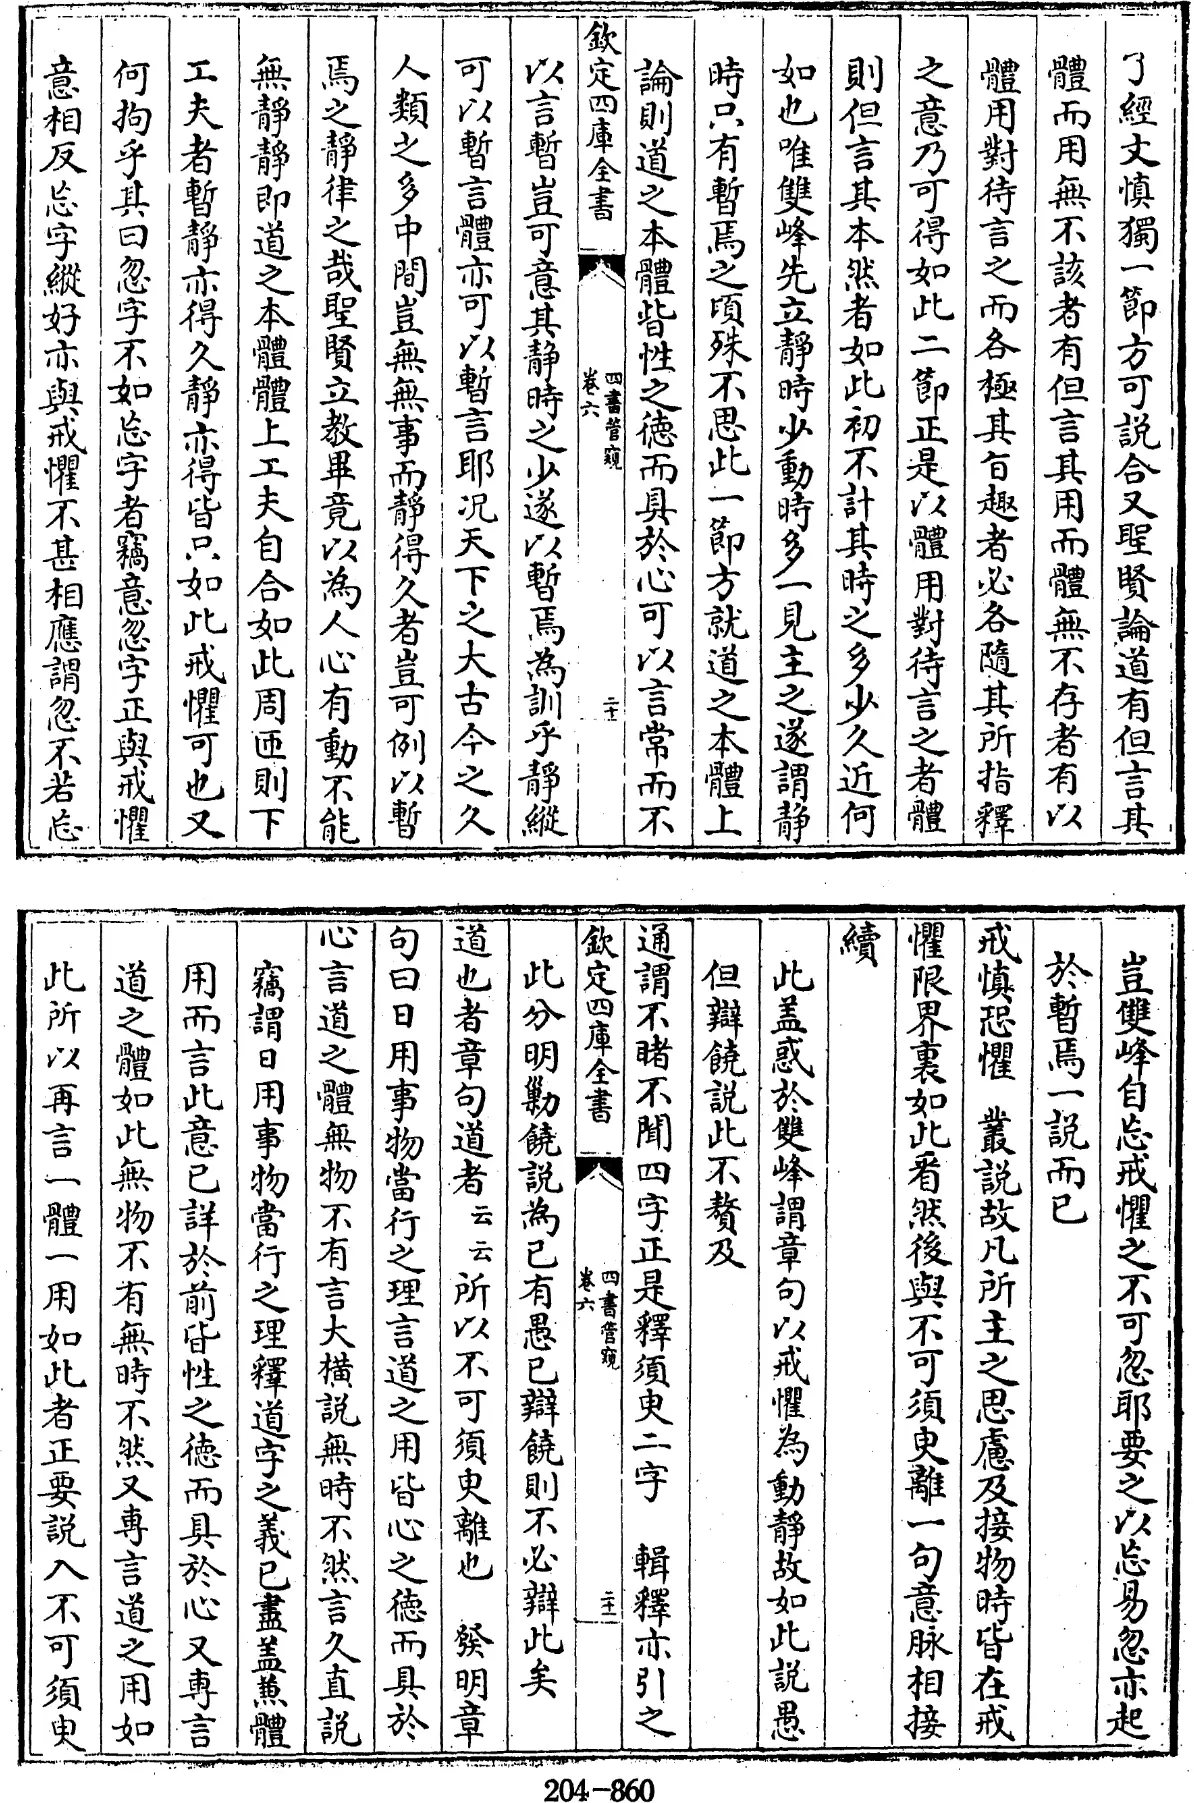 了經文慎獨一節方可説合又聖賢論道有但言其
體而用無不該者有但言其用而體無不存者有以
體用對待言之而各極其㫖趣者必各隨其所指釋
之意乃可得如此二節正是以體用對待言之者體
則但言其本然者如此初不計其時之多少久近何
如也唯雙峰先立靜時少動時多一見主之遂謂静
時只有暫焉之頃殊不思此一節方就道之本體上
論則道之本體皆性之徳而具於心可以言常而不
欽定四庫全書
四書管窺
卷六
二十
以言暫豈可意其静時之少遂以暫焉為訓乎靜縱
可以暫言體亦可以暫言耶况天下之大古今之久
人類之多中間豈無無事而靜得久者豈可例以暫
焉之靜律之哉聖賢立教畢竟以為人心有動不能
無静靜即道之本體體上工夫自合如此周匝則下
工夫者暫靜亦得久靜亦得皆只如此戒懼可也又
何拘乎其曰忽字不如忘字者竊意忽字正與戒懼
意相反忘字縱好亦與戒懼不甚相應謂忽不若忘
豈雙峰自忘戒懼之不可忽耶要之以忘易忽亦起
於暫焉一説而已
戒慎恐懼 叢説故凡所主之思慮及接物時皆在戒
懼限界裏如此看然後與不可須臾離一句意脉相接
續
此盖惑於雙峰謂章句以戒懼為動靜故如此説愚
但辯饒説此不贅及
通謂不睹不聞四字正是釋須臾二字 輯釋亦引之
欽定四庫全書
四書管窺
卷六
二十一
此分明勦饒説為已有愚已辯饒則不必辯此矣
道也者章句道者云云所以不可須臾離也 發明章
句曰日用事物當行之理言道之用皆心之徳而具於
心言道之體無物不有言大横説無時不然言久直説
竊謂日用事物當行之理釋道字之義已盡盖兼體
用而言此意已詳於前皆性之徳而具於心又專言
道之體如此無物不有無時不然又專言道之用如
此所以再言一體一用如此者正要説入不可須臾
204-860